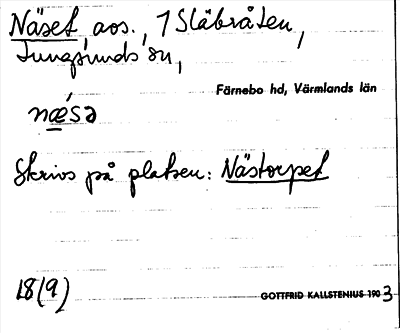 Näset, aos., 7 Släbråten,
Ljungsunds sn,
Färnebo hd, Värmlands län
næ´sə
Skrivs på platsen: Nästorpet
18(9)
GOTTFRID KALLSTENIUS 1903